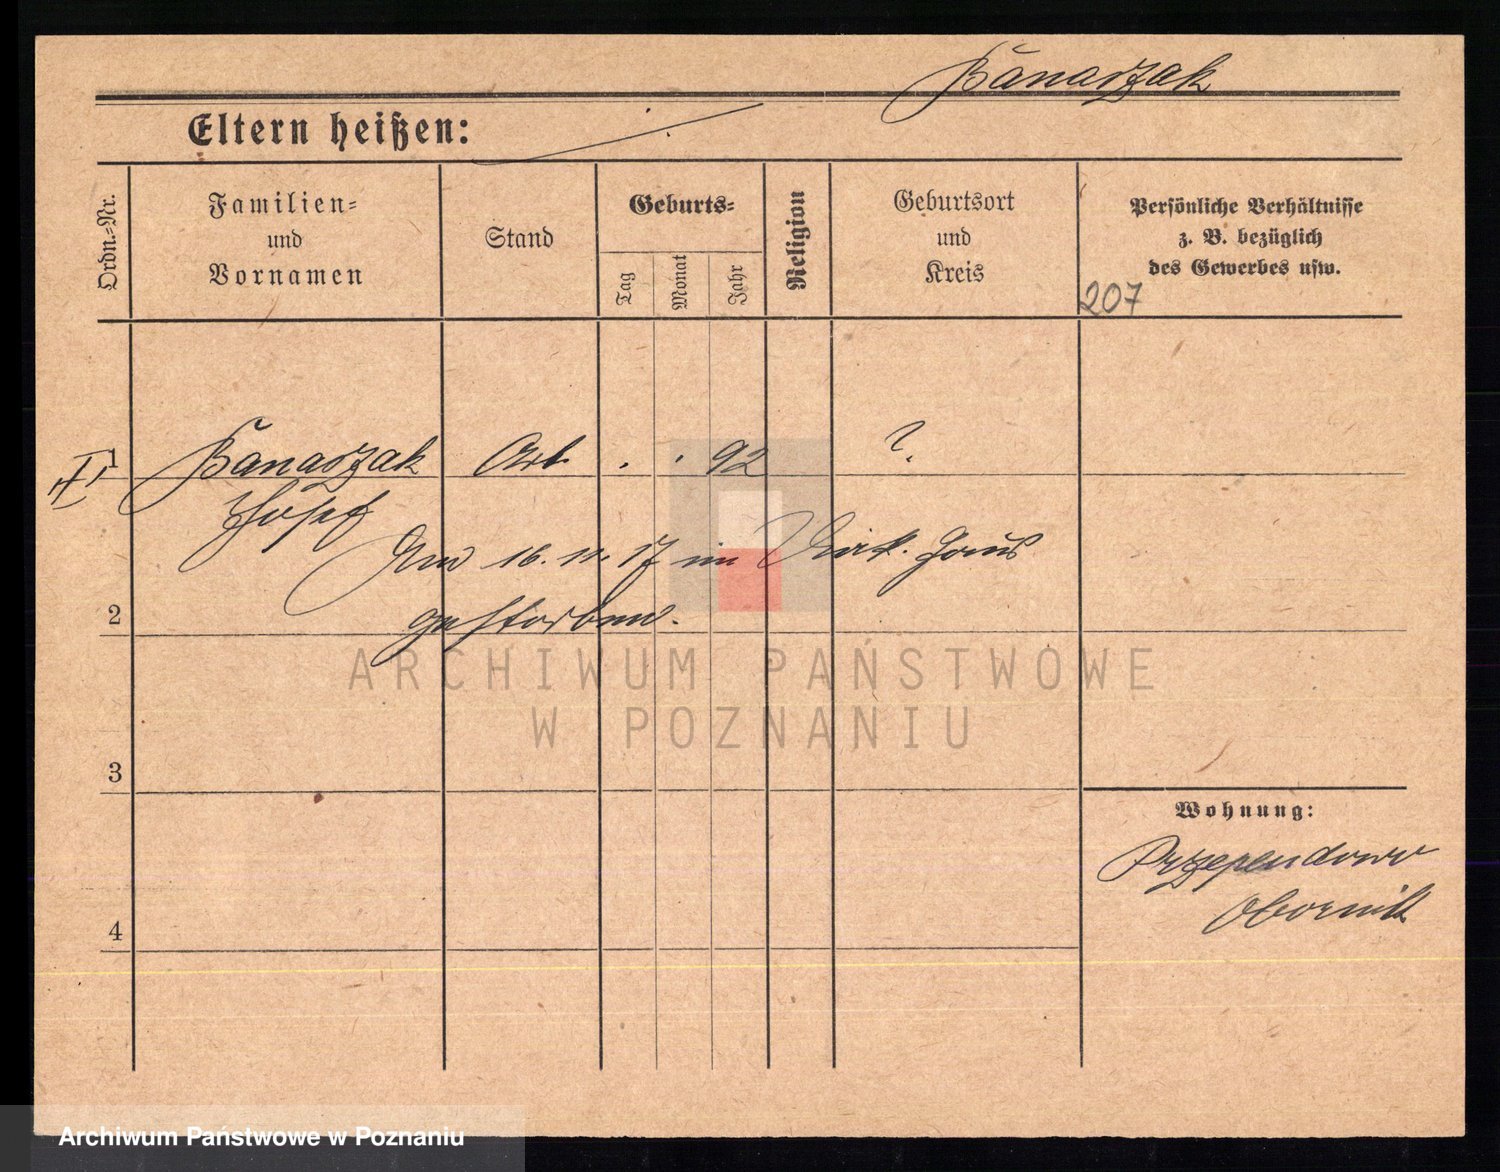 Banaszak
Eltern heißen:
Ordn.-Nr.
Familien-
und
Vornamen
Stand
Geburts-
Tag
Monat
Jahr
Religion
Geburtsort
und
Kreis
Persönliche Verhältnisse
z. B. bezüglich
des Gewerbes usw.
207
II 1 Banaszak Arb. . . 92 ?
Josef
Am 16. 11. 17 im Haus
gestorben.
2
ARCHIWUM PAŃSTWOWE
W POZNANIU
3
Wohnung:
Przependowo
Obornik
4
Archiwum Państwowe w Poznaniu